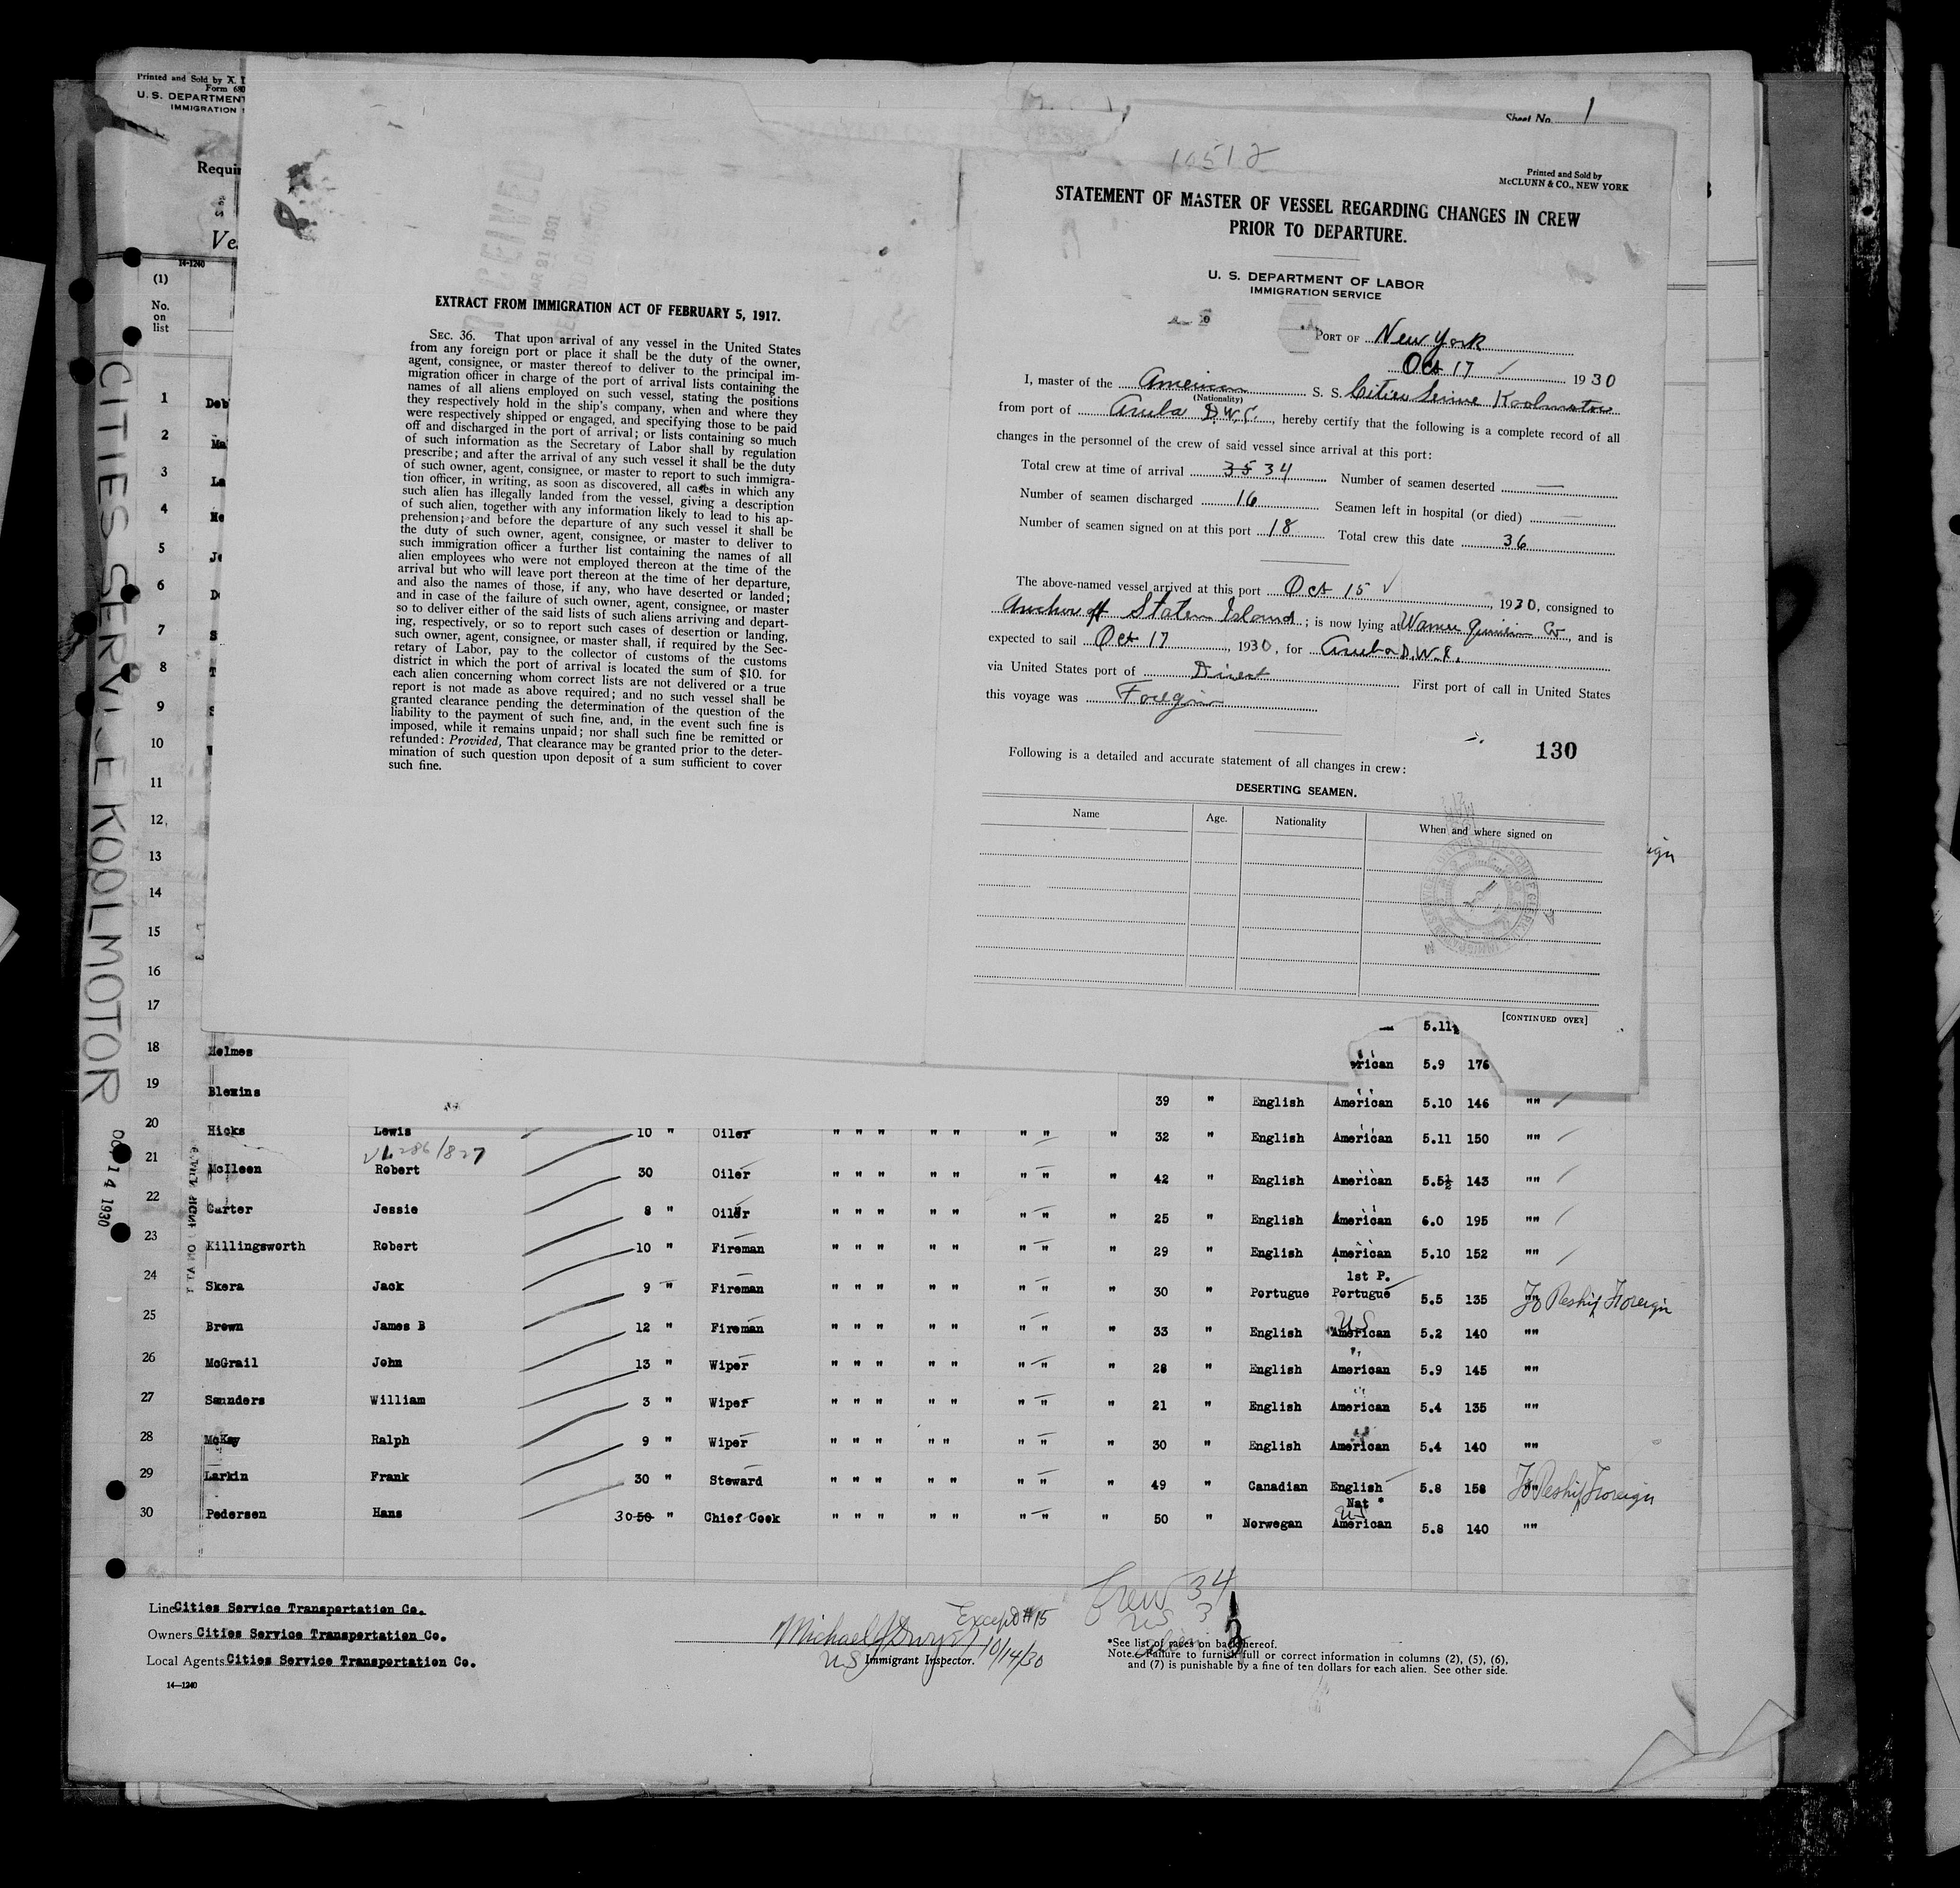 Printed and Sold by X. 
Form 680
U. S. DEPARTMENT
IMMIGRATION
Requir
Ve
14-1240
(1)
No.
on
list
CITIES SERVICE KOOLMOTOR
OCT 14 1930
EXTRACT FROM IMMIGRATION ACT OF FEBRUARY 5, 1917.
SEC. 36. That upon arrival of any vessel in the United States
from any foreign port or place it shall be the duty of the owner,
agent, consignee, or master thereof to deliver to the principal im-
migration officer in charge of the port of arrival lists containing the
names of all aliens employed on such vessel, stating the positions
they respectively hold in the ship's company, when and where they
were respectively shipped or engaged, and specifying those to be paid
off and discharged in the port of arrival; or lists containing so much
of such information as the Secretary of Labor shall by regulation
prescribe; and after the arrival of any such vessel it shall be the duty
of such owner, agent, consignee, or master to report to such immigra-
tion officer, in writing, as soon as discovered, all cases in which any
such alien has illegally landed from the vessel, giving a description
of such alien, together with any information likely to lead to his ap-
prehension; and before the departure of any such vessel it shall be
the duty of such owner, agent, consignee, or master to deliver to
such immigration officer a further list containing the names of all
alien employees who were not employed thereon at the time of the
arrival but who will leave port thereon at the time of her departure,
and also the names of those, if any, who have deserted or landed;
and in case of the failure of such owner, agent, consignee, or master
so to deliver either of the said lists of such aliens arriving and depart-
ing, respectively, or so to report such cases of desertion or landing,
such owner, agent, consignee, or master shall, if required by the Sec-
retary of Labor, pay to the collector of customs of the customs
district in which the port of arrival is located the sum of $10. for
each alien concerning whom correct lists are not delivered or a true
report is not made as above required; and no such vessel shall be
granted clearance pending the determination of the question of the
liability to the payment of such fine, and, in the event such fine is
imposed, while it remains unpaid; nor shall such fine be remitted or
refunded: Provided, That clearance may be granted prior to the deter-
mination of such question upon deposit of a sum sufficient to cover
such fine.
Sheet No. 1
10512
Printed and Sold by
McCLUNN & CO., NEW YORK
STATEMENT OF MASTER OF VESSEL REGARDING CHANGES IN CREW
PRIOR TO DEPARTURE.
U. S. DEPARTMENT OF LABOR
IMMIGRATION SERVICE
PORT OF New York
Oct 17 1930
I, master of the American S. S. Cities Service Koolmotor
(Nationality)
from port of Aruba D.W.I., hereby certify that the following is a complete record of all
changes in the personnel of the crew of said vessel since arrival at this port:
Total crew at time of arrival 35 34 Number of seamen deserted —
Number of seamen discharged 16 Seamen left in hospital (or died) —
Number of seamen signed on at this port 18 Total crew this date 36
The above-named vessel arrived at this port Oct 15, 1930, consigned to
Anchor off Staten Island; is now lying at Warner Quinlan Co, and is
expected to sail Oct 17, 1930, for Aruba D.W.I.
via United States port of Direct First port of call in United States
this voyage was Foreign
130
Following is a detailed and accurate statement of all changes in crew:
DESERTING SEAMEN.
Name Age. Nationality When and where signed on
[CONTINUED OVER]
1 Deb
2 Ma
3 La
4
5
6
7 S
8 T
9
10
11
12
13
14
15
16
17 5.11½
18 Helmes rican 5.9 176
19 Blewins 39 " English American 5.10 146 ""
20 Hicks Lewis 10 " Oiler " " " " " " " " 32 " English American 5.11 150 ""
286/827
21 McIleen Robert 30 Oiler " " " " " " " " 42 " English American 5.5½ 143 ""
22 Carter Jessie 8 " Oiler " " " " " " " " 25 " English American 6.0 195 ""
23 Killingsworth Robert 10 " Fireman " " " " " " " " 29 " English American 5.10 152 ""
1st P.
24 Skera Jack 9 " Fireman " " " " " " " " 30 " Portugue Portugue 5.5 135 "" To Reship Foreign
US
25 Brown James B 12 " Fireman " " " " " " " " 33 " English American 5.2 140 ""
26 McGrail John 13 " Wiper " " " " " " " " 28 " English American 5.9 145 ""
27 Saunders William 3 " Wiper " " " " " " " " 21 " English American 5.4 135 ""
28 McKay Ralph 9 " Wiper " " " " " " " " 30 " English American 5.4 140 ""
29 Larkin Frank 30 " Steward " " " " " " " " 49 " Canadian English 5.8 158 "" To Reship Foreign
Nat *
US
30 Pedersen Hans 30 50 " Chief Cook " " " " " " " " 50 " Norwegan American 5.8 140 ""
Line Cities Service Transportation Co.
Owners Cities Service Transportation Co.
Local Agents Cities Service Transportation Co.
14—1240
Except #15
Michael J Dwyer 10/14/30
US Immigrant Inspector.
Crew 34
US 3
*See list of races on back hereof.
Note.—Failure to furnish full or correct information in columns (2), (5), (6),
and (7) is punishable by a fine of ten dollars for each alien. See other side.